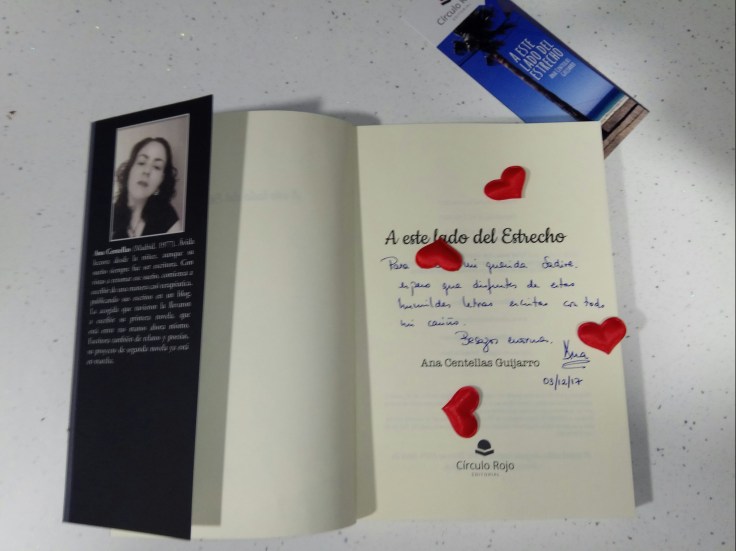 Círculo Rojo
A ESTE
LADO DEL
ESTRECHO
ANA CENTELLAS
GUIJARRO
Ana Centellas (Madrid, 1977). Ávida
lectora desde la niñez, aunque su
sueño siempre fue ser escritora. Con
vistas a retomar su sueño, comienza a
escribir de una manera casi terapéutica,
publicando sus escritos en un blog.
La acogida que tuvieron la llevaron
a escribir su primera novela, que
está entre tus manos ahora mismo.
Escritora también de relatos y poesías,
su proyecto de segunda novela ya está
en marcha.
A este lado del Estrecho
Para mi querida
espero que disfrutes de estas
humildes letras escritas con todo
mi cariño.
Besazos enormes.
Ana
Ana Centellas Guijarro
03/12/17
Círculo Rojo
EDITORIAL